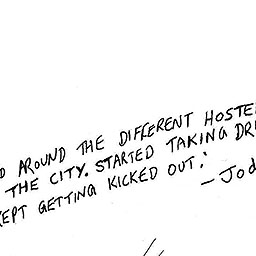 D AROUND THE DIFFERENT HOSTE
THE CITY. STARTED TAKING DR
EPT GETTING KICKED OUT.'
– Jod